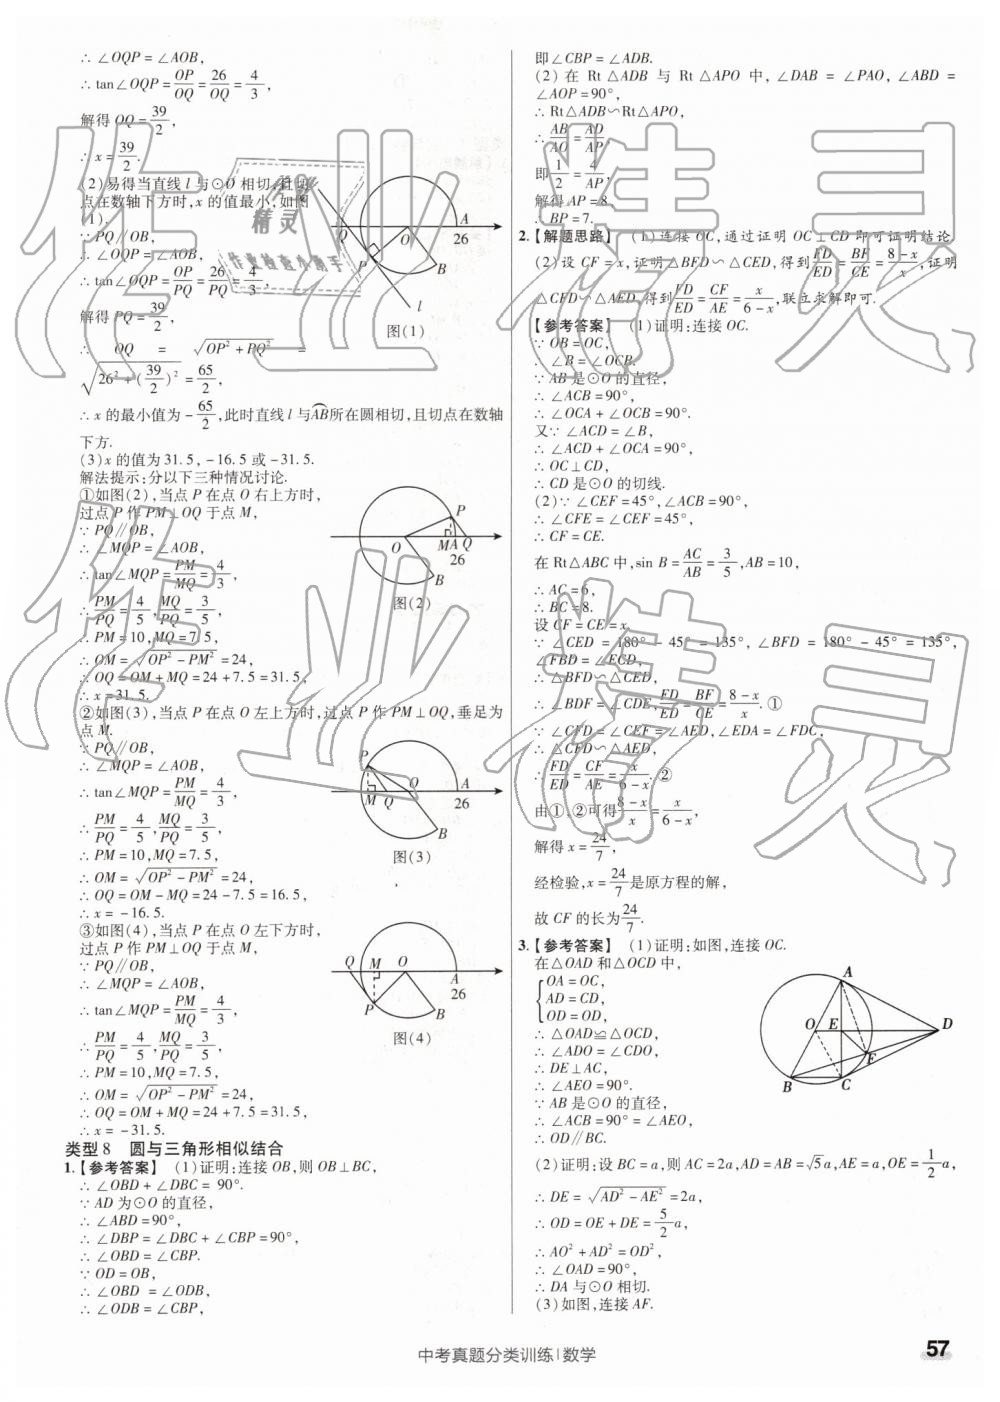 ∴ ∠OQP = ∠AOB,
∴ tan∠OQP = OP/OQ = 26/OQ = 4/3,
解得 OQ = 39/2,
∴ x = 39/2.
(2)易得当直线 l 与⊙O 相切,且切
点在数轴下方时,x 的值最小,如图
(1),
∵ PQ∥OB,
∴ ∠OQP = ∠AOB,
∴ tan∠OQP = OP/PQ = 26/PQ = 4/3,
解得 PQ = 39/2,
∴ OQ = √(OP² + PQ²) =
√(26² + (39/2)²) = 65/2,
∴ x 的最小值为 - 65/2,此时直线 l 与AB所在圆相切,且切点在数轴
下方.
(3)x 的值为 31.5, -16.5 或 -31.5.
解法提示:分以下三种情况讨论.
①如图(2),当点 P 在点 O 右上方时,
过点 P 作 PM⊥OQ 于点 M,
∵ PQ∥OB,
∴ ∠MQP = ∠AOB,
∴ tan∠MQP = PM/MQ = 4/3,
∴ PM/PQ = 4/5, MQ/PQ = 3/5,
∴ PM = 10, MQ = 7.5,
∴ OM = √(OP² - PM²) = 24,
∴ OQ = OM + MQ = 24 + 7.5 = 31.5,
∴ x = 31.5.
②如图(3),当点 P 在点 O 左上方时,过点 P 作 PM⊥OQ,垂足为
点 M.
∵ PQ∥OB,
∴ ∠MQP = ∠AOB,
∴ tan∠MQP = PM/MQ = 4/3,
∴ PM/PQ = 4/5, MQ/PQ = 3/5,
∴ PM = 10, MQ = 7.5,
∴ OM = √(OP² - PM²) = 24,
∴ OQ = OM - MQ = 24 - 7.5 = 16.5,
∴ x = -16.5.
③如图(4),当点 P 在点 O 左下方时,
过点 P 作 PM⊥OQ 于点 M,
∵ PQ∥OB,
∴ ∠MQP = ∠AOB,
∴ tan∠MQP = PM/MQ = 4/3,
∴ PM/PQ = 4/5, MQ/PQ = 3/5,
∴ PM = 10, MQ = 7.5,
∴ OM = √(OP² - PM²) = 24,
∴ OQ = OM + MQ = 24 + 7.5 = 31.5,
∴ x = -31.5.
O A 26 P B l
图(1)
P O M A Q 26 B
图(2)
P M Q O A 26 B
图(3)
Q M O A 26 P B
图(4)
类型 8 圆与三角形相似结合
1.【参考答案】 (1)证明:连接 OB,则 OB⊥BC,
∴ ∠OBD + ∠DBC = 90°.
∵ AD 为⊙O 的直径,
∴ ∠ABD = 90°,
∴ ∠DBP = ∠DBC + ∠CBP = 90°,
∴ ∠OBD = ∠CBP.
∵ OD = OB,
∴ ∠OBD = ∠ODB,
∴ ∠ODB = ∠CBP,
即∠CBP = ∠ADB.
(2) 在 Rt △ADB 与 Rt △APO 中, ∠DAB = ∠PAO, ∠ABD =
∠AOP = 90°,
∴ Rt△ADB∽Rt△APO,
∴ AB/AO = AD/AP,
即 1/2 = 4/AP,
解得 AP = 8,
∴ BP = 7.
2.【解题思路】 (1)连接 OC,通过证明 OC⊥CD 即可证明结论.
(2)设 CF = x,证明△BFD∽△CED,得到 FD/ED = BF/CE = (8 - x)/x,证明
△CFD∽△AED,得到 FD/ED = CF/AE = x/(6 - x),联立求解即可.
【参考答案】 (1)证明:连接 OC.
∵ OB = OC,
∴ ∠B = ∠OCB.
∵ AB 是⊙O 的直径,
∴ ∠ACB = 90°,
∴ ∠OCA + ∠OCB = 90°.
又∵ ∠ACD = ∠B,
∴ ∠ACD + ∠OCA = 90°,
∴ OC⊥CD,
∴ CD 是⊙O 的切线.
(2)∵ ∠CEF = 45°, ∠ACB = 90°,
∴ ∠CFE = ∠CEF = 45°,
∴ CF = CE.
在 Rt△ABC 中, sin B = AC/AB = 3/5, AB = 10,
∴ AC = 6,
∴ BC = 8.
设 CF = CE = x.
∵ ∠CED = 180° - 45° = 135°, ∠BFD = 180° - 45° = 135°,
∠FBD = ∠ECD,
∴ △BFD∽△CED,
∴ ∠BDF = ∠CDE, FD/ED = BF/CE = (8 - x)/x. ①
∵ ∠CFD = ∠CEF = ∠AED, ∠EDA = ∠FDC,
∴ △CFD∽△AED,
∴ FD/ED = CF/AE = x/(6 - x). ②
由①,②可得 (8 - x)/x = x/(6 - x),
解得 x = 24/7,
经检验, x = 24/7 是原方程的解,
故 CF 的长为 24/7.
3.【参考答案】 (1)证明:如图,连接 OC.
在△OAD 和△OCD 中,
OA = OC,
AD = CD,
OD = OD,
∴ △OAD≌△OCD,
∴ ∠ADO = ∠CDO,
∴ DE⊥AC,
∴ ∠AEO = 90°.
∵ AB 是⊙O 的直径,
∴ ∠ACB = 90° = ∠AEO,
∴ OD∥BC.
A O E D F B C
(2)证明:设 BC = a,则 AC = 2a, AD = AB = √5a, AE = a, OE = 1/2 a,
∴ DE = √(AD² - AE²) = 2a,
∴ OD = OE + DE = 5/2 a,
∴ AO² + AD² = OD²,
∴ ∠OAD = 90°,
∴ DA 与⊙O 相切.
(3)如图,连接 AF.
中考真题分类训练|数学
57
作业精灵
作业精灵